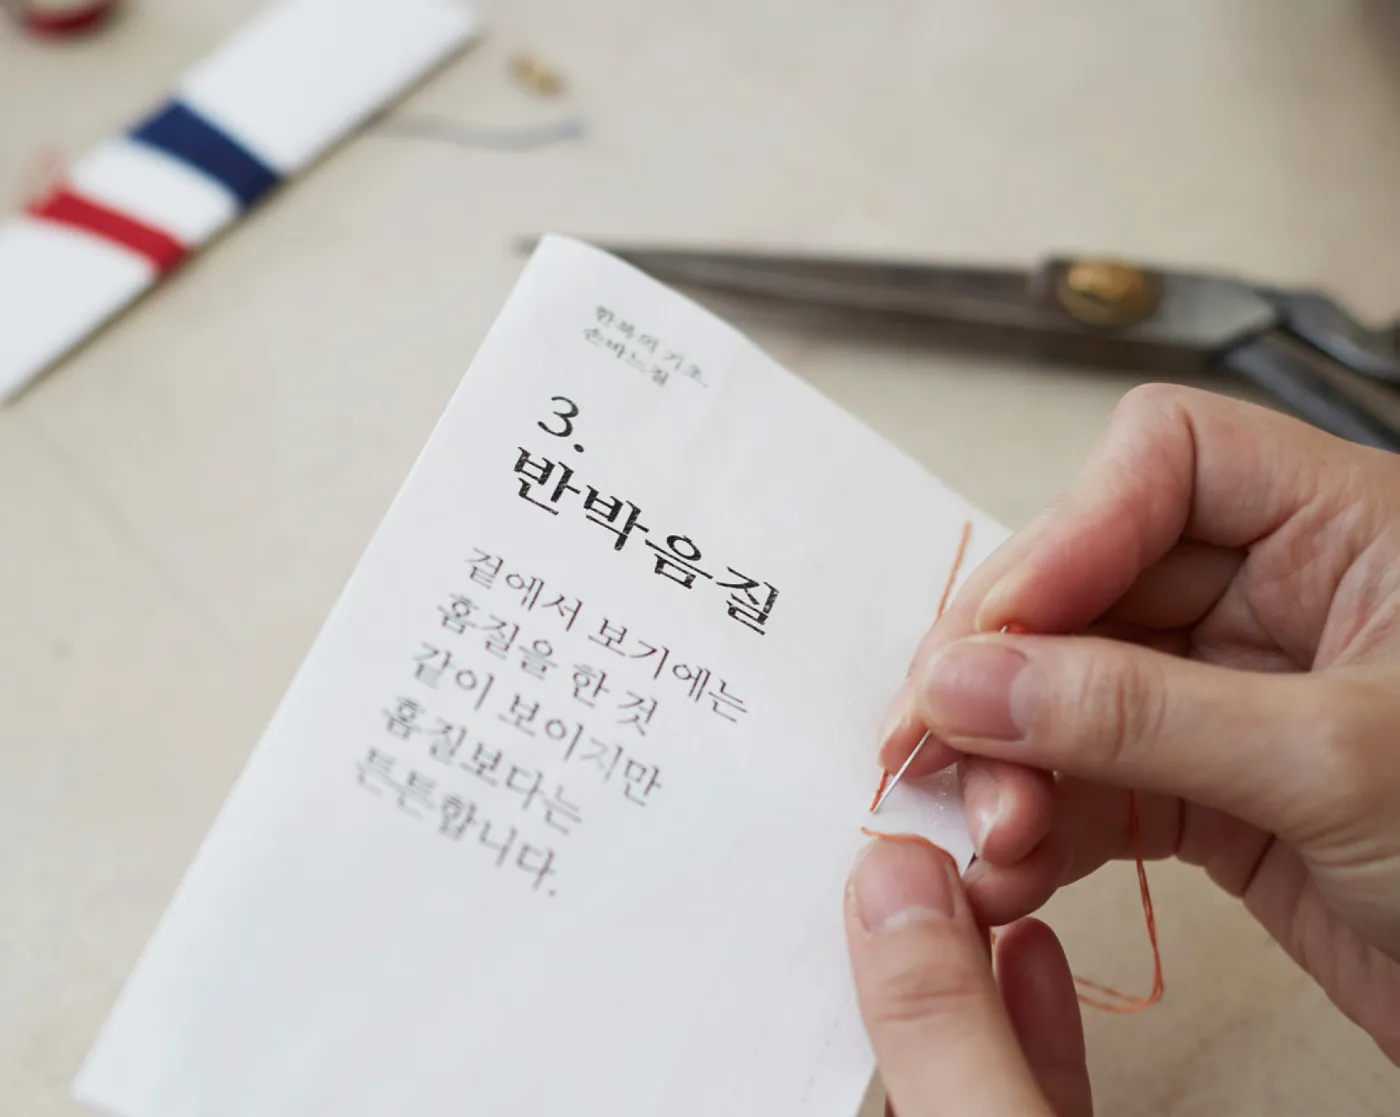 한복의 기초,
손바느질
3.
반박음질
겉에서 보기에는
홈질을 한 것
같이 보이지만
홈질보다는
튼튼합니다.